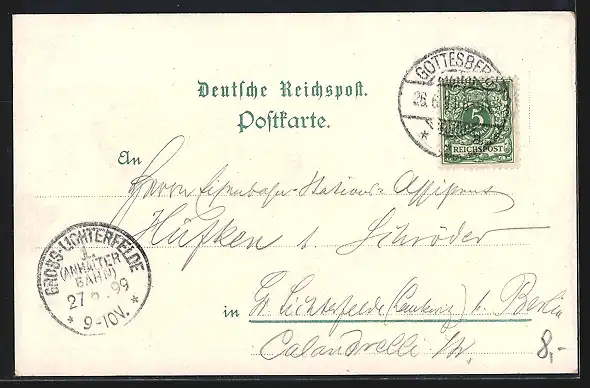 GOTTESBERG
26.6.
5
REICHSPOST
Deutsche Reichspost.
Postkarte.
An
Herrn Eisenbahn-Stations-Assistent
Hüfken b. Schröder
GROSS-LICHTERFELDE
1.
(ANHALTER
BAHN)
27 6 99
* 9-10V. *
in Gr. Lichterfelde (Lankwitz) b. Berlin
Calandrelli Str.
8,-